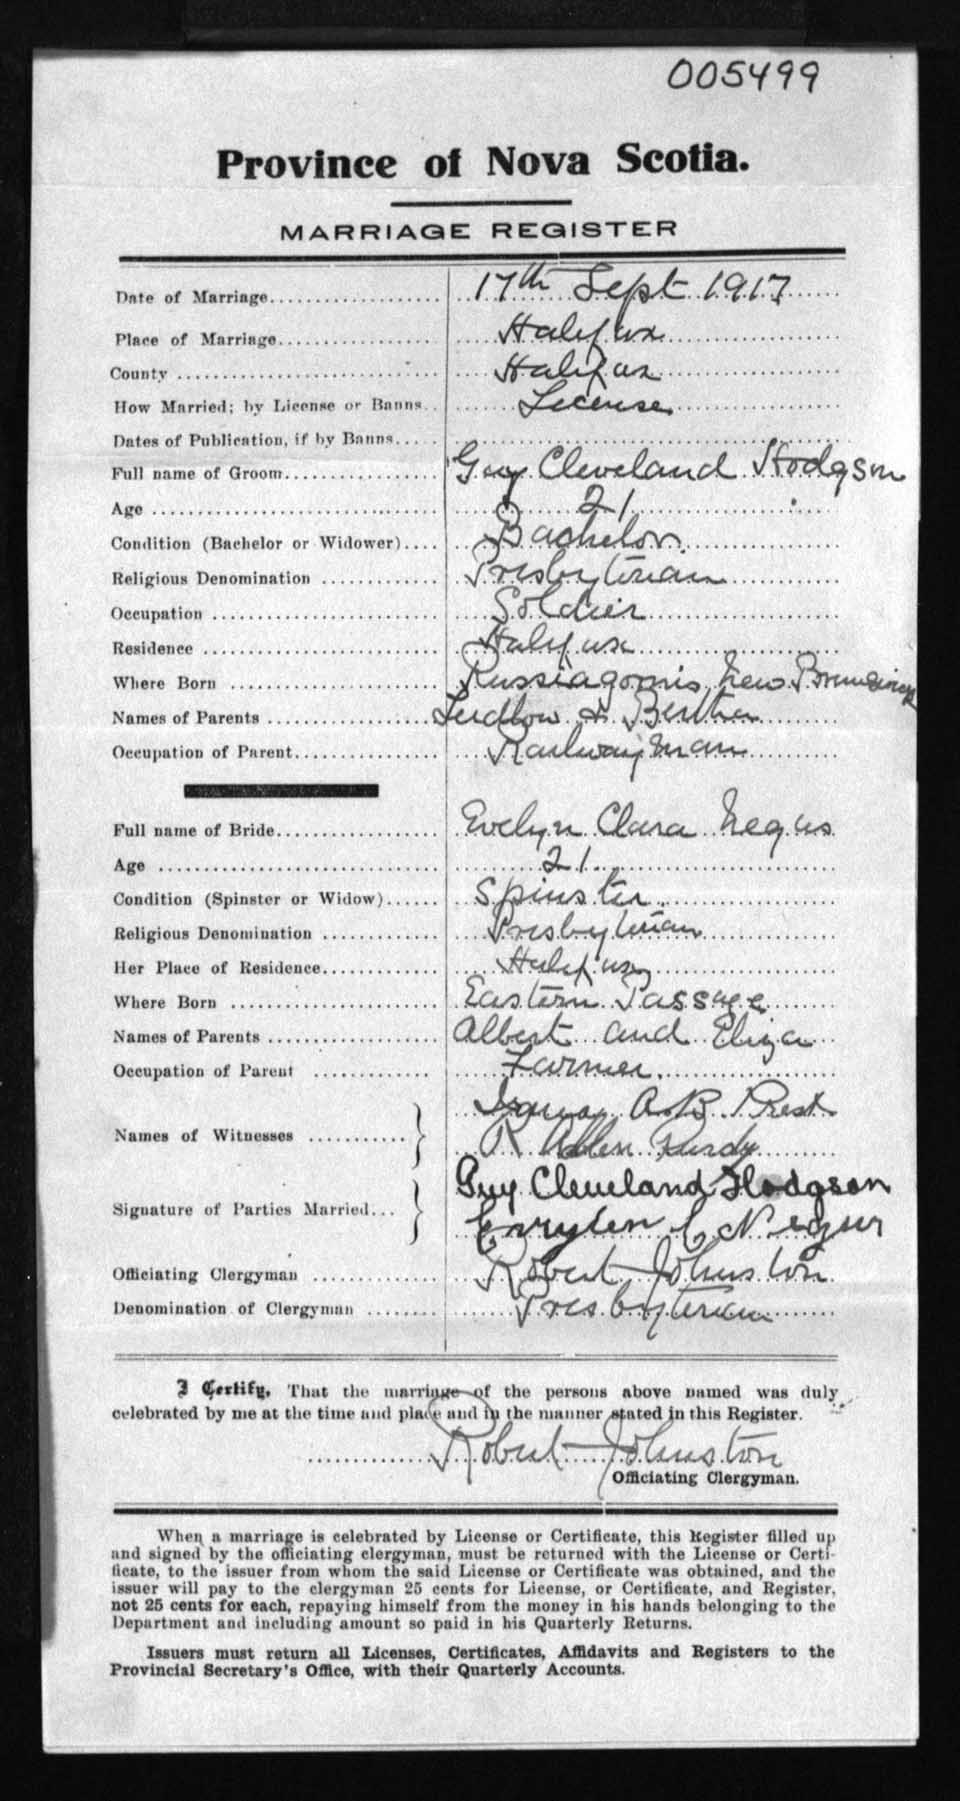 005499
Province of Nova Scotia.
MARRIAGE REGISTER
Date of Marriage 17th Sept 1917
Place of Marriage Halifax
County Halifax
How Married; by License or Banns License
Dates of Publication, if by Banns
Full name of Groom Guy Cleveland Hodgson
Age 21
Condition (Bachelor or Widower) Bachelor
Religious Denomination Presbyterian
Occupation Soldier
Residence Halifax
Where Born Russiagornis, New Brunswick
Names of Parents Ludlow & Bertha
Occupation of Parent Railway man
Full name of Bride Evelyn Clara Negus
Age 21
Condition (Spinster or Widow) Spinster
Religious Denomination Presbyterian
Her Place of Residence Halifax
Where Born Eastern Passage
Names of Parents Albert and Eliza
Occupation of Parent Farmer
Names of Witnesses A B Prest
R Allen Purdy
Signature of Parties Married Guy Cleveland Hodgson
C Negus
Officiating Clergyman Robert Johnston
Denomination of Clergyman Presbyterian
I Certify, That the marriage of the persons above named was duly
celebrated by me at the time and place and in the manner stated in this Register.
Robert Johnston
Officiating Clergyman.
When a marriage is celebrated by License or Certificate, this Register filled up
and signed by the officiating clergyman, must be returned with the License or Certi-
ficate, to the issuer from whom the said License or Certificate was obtained, and the
issuer will pay to the clergyman 25 cents for License, or Certificate, and Register,
not 25 cents for each, repaying himself from the money in his hands belonging to the
Department and including amount so paid in his Quarterly Returns.
Issuers must return all Licenses, Certificates, Affidavits and Registers to the
Provincial Secretary's Office, with their Quarterly Accounts.